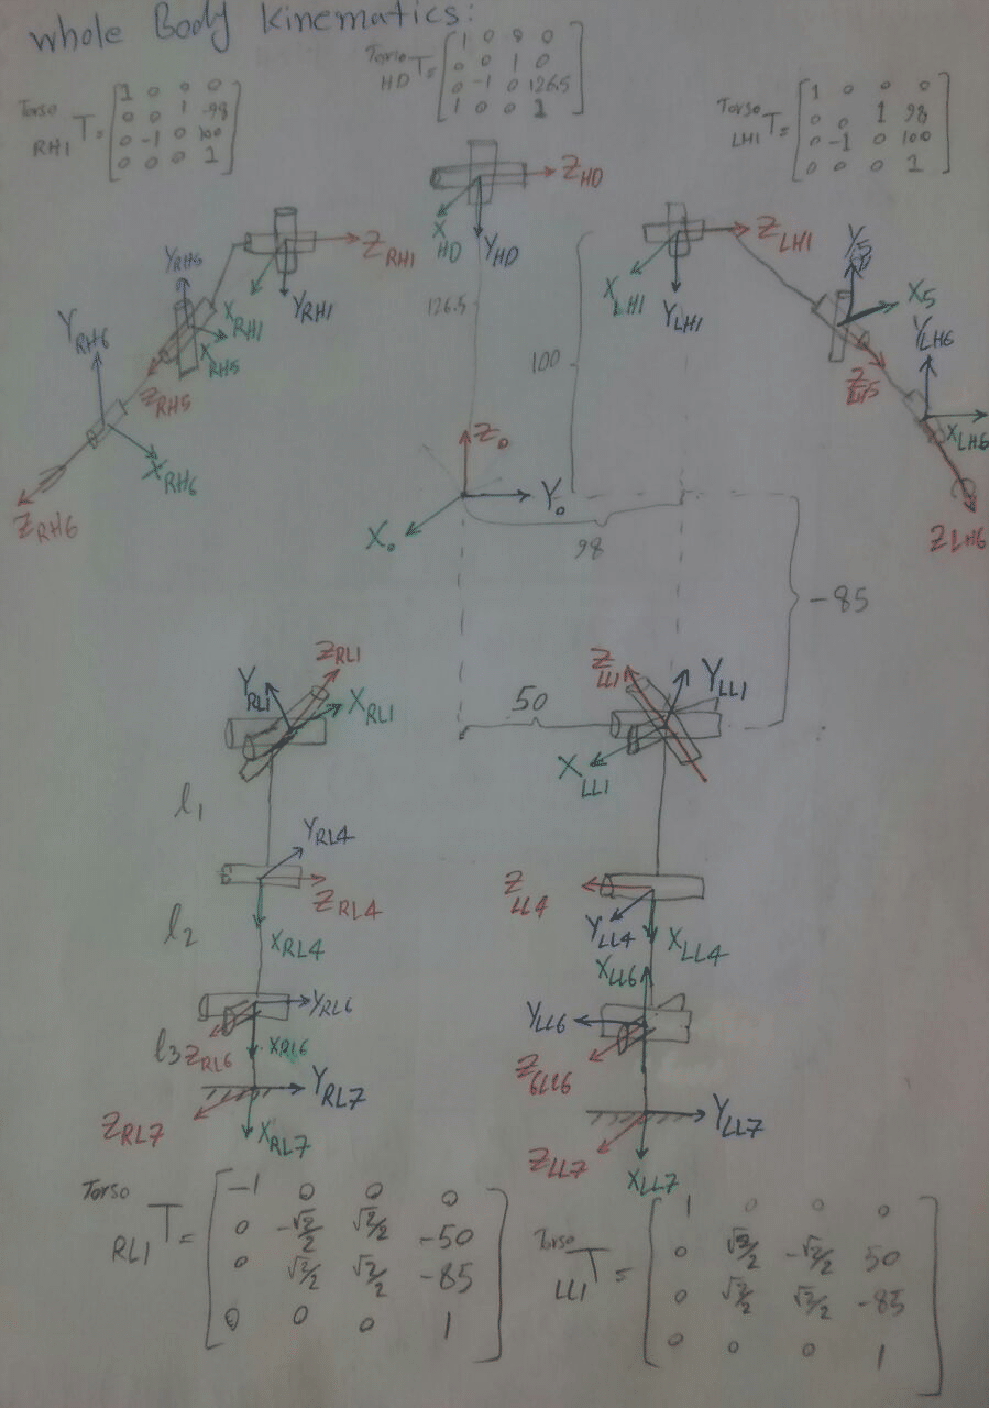 whole Body kinematics:
Torso HD T = [1 0 0 0
0 0 1 0
0 -1 0 126.5
1 0 0 1]
Torso RH1 T = [1 0 0 0
0 0 1 -98
0 -1 0 100
0 0 0 1]
Torso LH1 T = [1 0 0 0
0 0 1 98
0 -1 0 100
0 0 0 1]
Z HD
X HD
Y HD
Z RH1
X RH1
Y RH1
Z LH1
X LH1
Y LH1
Y RH5
X RH5
Z RH5
Y RH6
X RH6
Z RH6
Y5
X5
Y LH6
X LH6
Z LH6
126.5
100
Z0
Y0
X0
98
-85
Z RL1
Y RL1
X RL1
50
Z LL1
Y LL1
X LL1
l1
Y RL4
Z RL4
X RL4
Z LL4
Y LL4
X LL4
l2
X LL6
Y RL6
Y LL6
l3
Z RL6
X RL6
Z 6LL6
Y RL7
Z RL7
X RL7
Y LL7
Z LL7
X LL7
Torso RL1 T = [-1 0 0 0
0 -√2/2 √2/2 -50
0 √2/2 √2/2 -85
0 0 0 1]
Torso LL1 T = [1 0 0 0
0 √2/2 -√2/2 50
0 √2/2 √2/2 -85
0 0 0 1]